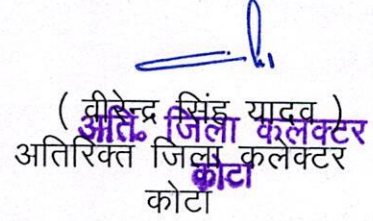 ( वीरेन्द्र सिंह यादव )
अति. जिला कलेक्टर
अतिरिक्त जिला कलेक्टर
कोटा
कोटा